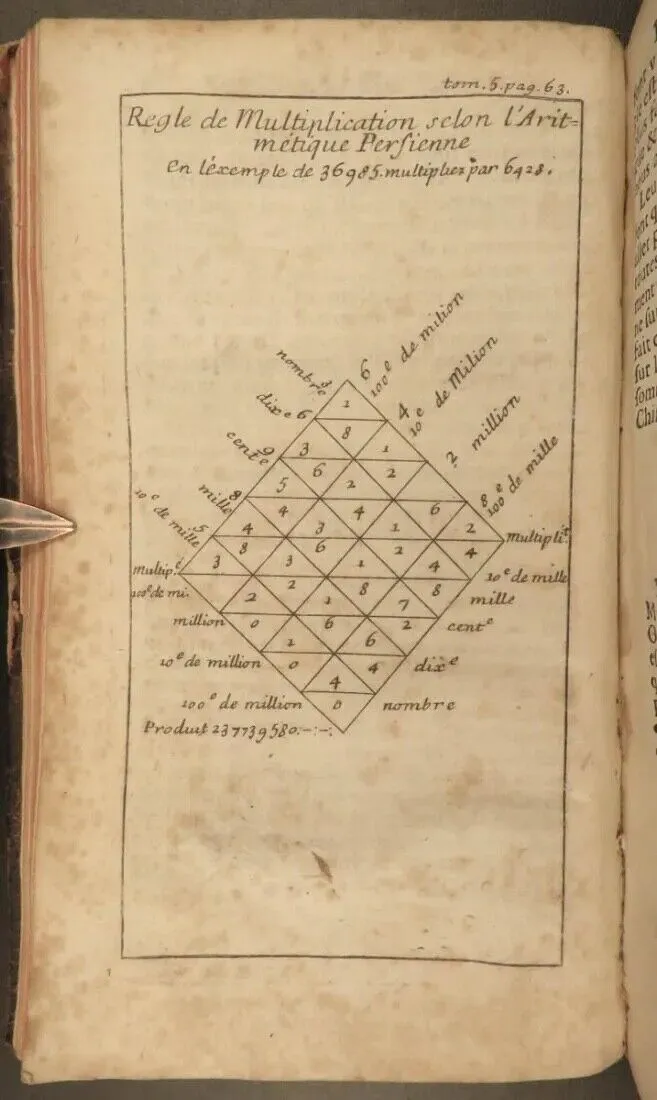 tom. 5. pag. 63.
Regle de Multiplication selon l'Arit=
métique Persienne
En léxemple de 36985. multiplier par 6428.
nombre 3
6 100e de milion
dixe 6
1
4 10e de Milion
8
cente 9
3 1
2 million
6 2
mille 8
5 2
8e 100 de mille
4 4 6
10e de mille 5
4 3 1 2
Multipli.t
8 6 2 4
Multip.é
3 3 1 4
10e de mille
100e de mi.
2 8 8
mille
2 1 7
million
0 6 2
cente
1 6
10e de million
0 4
dixe
4
100e de million
0
nombre
Produit 237739580.-:-: